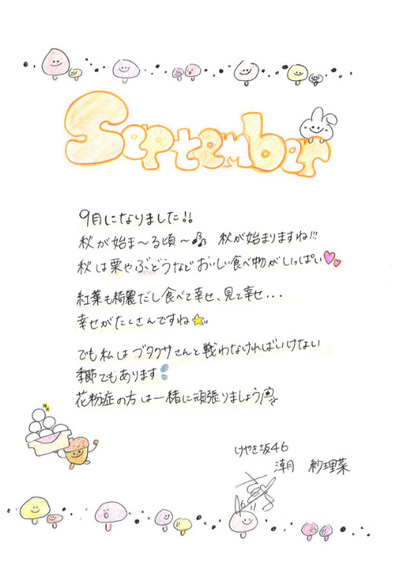 September
9月になりました!!
秋が始ま〜る頃〜♪ 秋が始まりますね!!!
秋は栗やぶどうなどおいしい食べ物がいっぱい
紅葉も綺麗だし食べて幸せ、見て幸せ...
幸せがたくさんですね
でも私はブタクサさんと戦わなければいけない
季節でもあります
花粉症の方は一緒に頑張りましょう
けやき坂46
潮 紗理菜